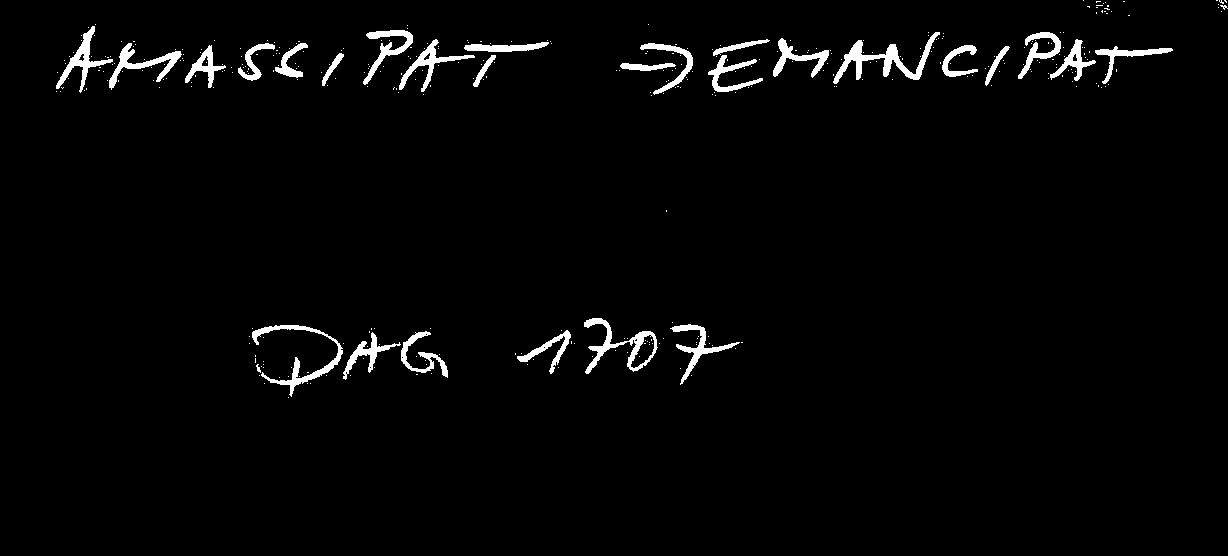 AMASSIPAT → EMANCIPAT
DAG 1707